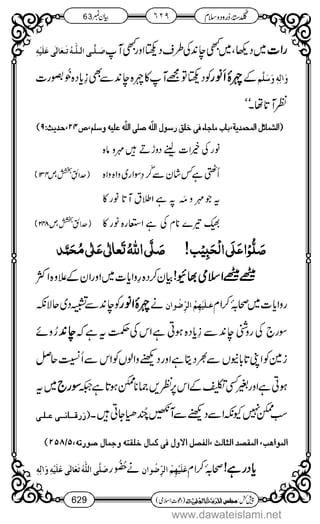 گلدستۂ درود و سلام ٦٢٩ بیان نمبر 63
رات میں دیکھا، میں کبھی چاند کی طرف دیکھتا اور کبھی آپ صَلَّی اللّٰہُ تَعَالٰی عَلَیْہِ
وَاٰلِہٖ وَسَلَّم کے چہرۂ انور کو دیکھتا تو مجھے آپ کا چہرہ چاند سے بھی زیادہ خوبصورت
نظر آتا تھا۔
(الشمائل المحمدیة، باب ماجاء فی خلق رسول اللّٰہ صلی اللّٰہ علیہ وسلم، ص ٢٤، حدیث: ٩)
نور کی خیرات لینے دوڑتے ہیں مہر و ماہ
اٹھتی ہے کس شان سے گردِ سواری واہ واہ (حدائقِ بخشش، ص ١٣٤)
یہ جو مہر و مہ پہ ہے اطلاق آتا نور کا
بھیک تیرے نام کی ہے استعارہ نور کا (حدائقِ بخشش، ص ٢٤٨)
صَلُّوْا عَلَی الْحَبِیْب! صَلَّی اللّٰہُ تَعَالٰی عَلٰی مُحَمَّد
میٹھے میٹھے اسلامی بھائیو! بیان کردہ روایات میں اور ان کے علاوہ اکثر
روایات میں صحابۂ کرام عَلَیْہِمُ الرِّضْوَان نے چہرۂ انور کو چاند سے تشبیہ دی حالانکہ
سورج کی روشنی چاند سے زیادہ ہوتی ہے اس کی حکمت یہ ہے کہ چاند روئے
زمین کو اپنی تابانیوں سے بھر دیتا ہے اور دیکھنے والوں کو اس سے اُنسیت حاصل
ہوتی ہے اور بغیر کسی تکلیف کے اس پر نظریں جمانا ممکن ہوتا ہے جبکہ سورج میں یہ
سب ممکن نہیں کیونکہ اسے دیکھنے سے آنکھیں چُندھیا جاتی ہیں۔ (زرقانی علی
المواھب، المقصد الثالث، الفصل الاول فی کمال خلقتہ وجمال صورتہ، ٢٥٨/٥)
یاد رہے! صحابۂ کرام عَلَیْہِمُ الرِّضْوَان نے حُضُور صَلَّی اللّٰہُ تَعَالٰی عَلَیْہِ وَاٰلِہٖ
629
www.dawateislami.net